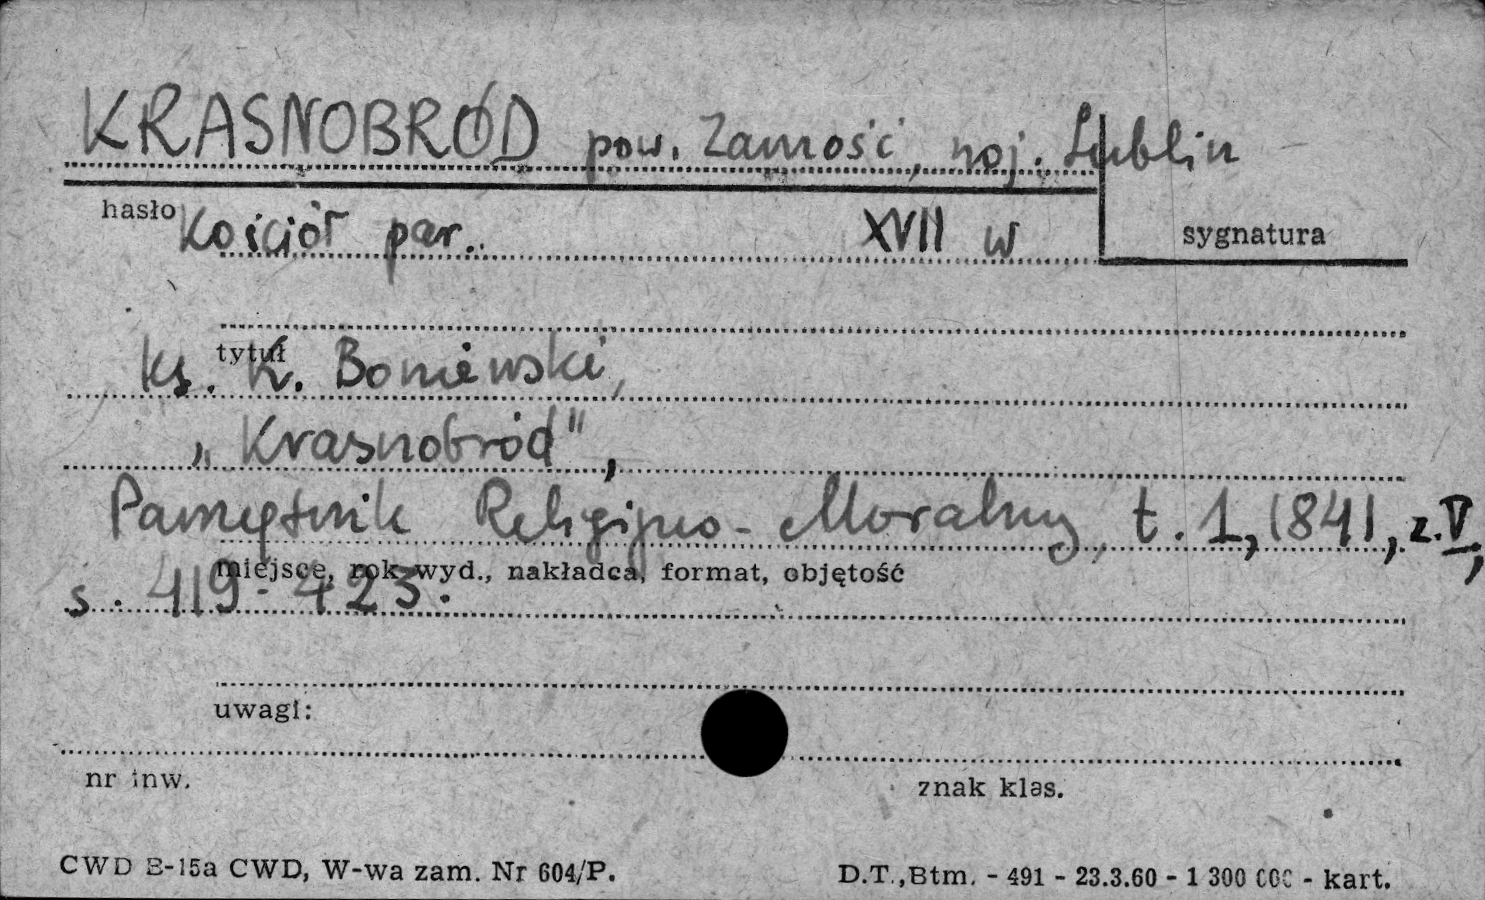 KRASNOBRÓD pow. Zamość, woj. Lublin
hasło Kościół par.. XVII w
sygnatura
tytuł
ks. K. Boniewski,
„Krasnobród",
Pamiętnik Religijno-Moralny, t. 1, 1841, z. V,
miejsce, rok wyd., nakładca, format, objętość
s. 419-423.
uwagi:
nr inw.
znak klas.
CWD B-15a CWD, W-wa zam. Nr 604/P.
D.T.,Btm. - 491 - 23.3.60 - 1 300 000 - kart.